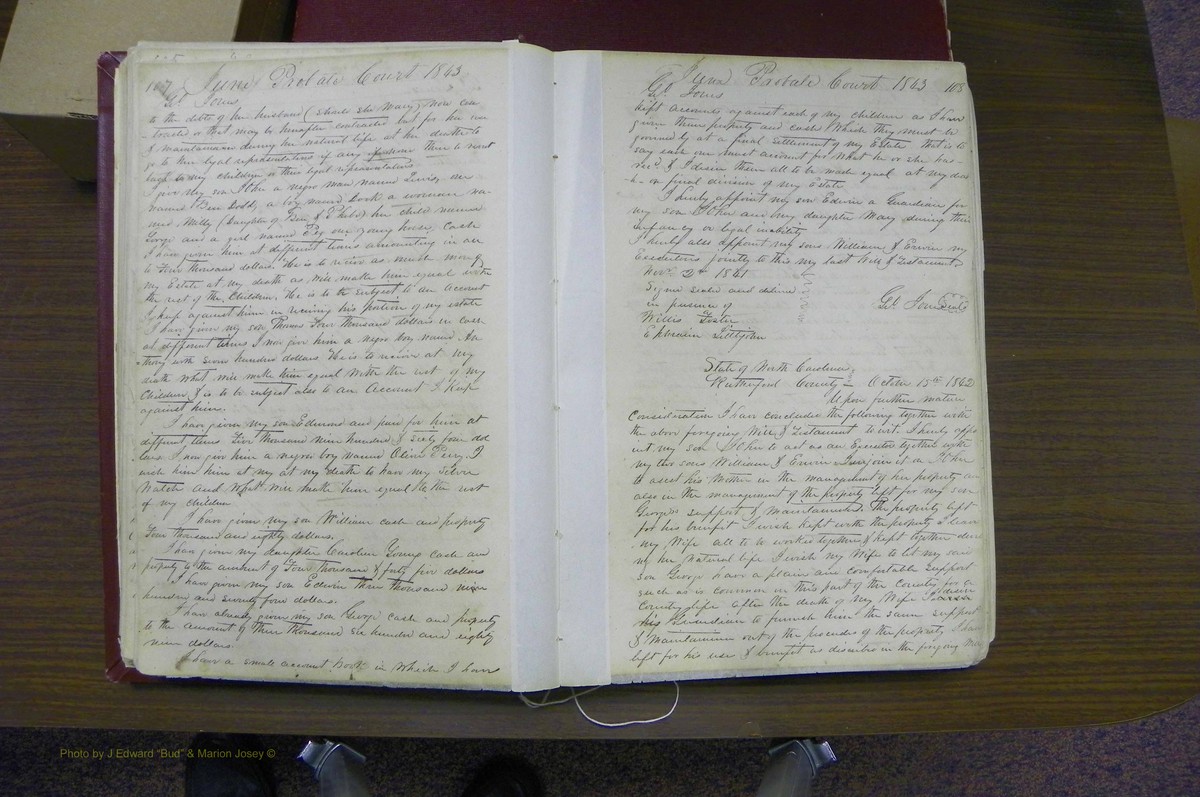 107 June Probate Court 1843
Go. Jones
to the debts of her husband (should she Mary) now con
tracted or that may be hereafter contracted but for her use
& maintainance during her natural life at her death to
go to her legal representatives if any otherwise then to revert
back to my children or their legal representatives
I give my son John a negro man named one
named Ben Dobb, a boy named a woman na
med Milly (Daughter of Ben & Phebe) her child named
George and a girl named Peg one young horse, Cash
I have given him at different times amounting in all
to Four thousand dollars. He is to receive as much more of
my Estate at my death as will make him equal with
the rest of the Children. He is to be subject to an account
I keep against him in receiving his portion of my estate
I have given my son Thomas Four thousand dollars in cash
at different times I now give him a negro boy named An
thony worth Seven hundred dollars He is to receive at my
death what will make him equal with the rest of my
Children & is to be subject also to an Account I Keep
against him.
I have given my son Edmund and paid for him at
different times Five thousand nine hundred & Sixty four dol
lars. I now give him a negro boy named Oliver Perry, I
wish him at my at my death to have my Silver
Watch and what will make him equal to the rest
of my children
I have given my son William cash and property
Four thousand and eighty dollars.
I have given my daughter Caroline Young cash and
property to the amount of Four thousand & forty five dollars
I have given my son Edwin three thousand nine
hundred and seventy four dollars.
I have already given my son George cash and property
to the amount of three thousand six hundred and eighty
nine dollars.
I have a small account Book in Which I have
June Probate Court 1843 108
Go. Jones
kept accounts against each of my children as I have
given them property and cash Which they must be
governed by at a final settlement of my Estate that is to
say each one must account for what he or she has
recd & I desire them all to be made equal at my deat
h on final division of my Estate
I hereby appoint my son Edwin a Guardian for
my son John and my daughter Mary during their
infancy or legal inability
I hereby also appoint my sons William & Erwin my
Executors jointly to this my last Will & Testament
Novr 2nd 1841
Signed sealed and deliverd
in presence of
Go. Jones Seal
Willis Foster
Ephraim Littlejohn
State of North Carolina
Rutherford County October 15th 1842
Upon further mature
Consideration I have concluded the following together with
the above foregoing Will & Testament to wit. I hereby appo
int my son John to act as an Executor together with
my two sons William & Erwin I enjoin it on John
to assist his Mother in the management of her property and
also in the management of the property left for my son
George's support & maintainance. The property left
for his benefit I wish kept with the property I leave
my Wife all to be worked together & kept together duri
ng her natural life I wish my Wife to let my said
son George have a plain and comfortable support
such as is common in this part of the County for a
Country life after the death of my Wife I desire
his Guardian to furnish him the same support
& Maintainance out of the proceeds of the property I have
left for his use & benefit as described in the forgoing
Photo by J Edward "Bud" & Marion Josey ©